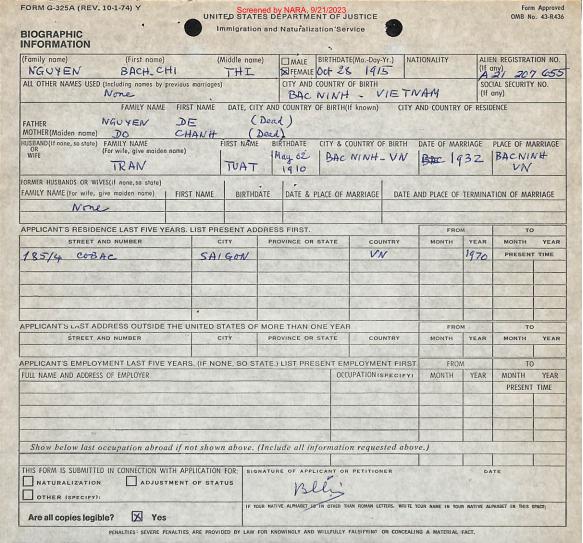 FORM G-325A (REV. 10-1-74) Y
Screened by NARA, 9/21/2023
Form Approved
OMB No. 43-R436
UNITED STATES DEPARTMENT OF JUSTICE
Immigration and Naturalization Service
BIOGRAPHIC
INFORMATION
(Family name) (First name) (Middle name) MALE BIRTHDATE(Mo.-Day-Yr.) NATIONALITY ALIEN REGISTRATION NO.
(If any)
NGUYEN BACH_CHI THI FEMALE Oct 28 1915 A21 207 655
ALL OTHER NAMES USED (Including names by previous marriages) CITY AND COUNTRY OF BIRTH SOCIAL SECURITY NO.
(If any)
None BAC NINH - VIETNAM
FAMILY NAME FIRST NAME DATE, CITY AND COUNTRY OF BIRTH(If known) CITY AND COUNTRY OF RESIDENCE
FATHER NGUYEN DE (Dead)
MOTHER(Maiden name) DO CHANH (Dead)
HUSBAND(If none, so state) OR WIFE FAMILY NAME (For wife, give maiden name) FIRST NAME BIRTHDATE CITY & COUNTRY OF BIRTH DATE OF MARRIAGE PLACE OF MARRIAGE
TRAN TUAT May 02 1910 BAC NINH - VN 1932 BACNINH VN
FORMER HUSBANDS OR WIVES(if none, so state)
FAMILY NAME (For wife, give maiden name) FIRST NAME BIRTHDATE DATE & PLACE OF MARRIAGE DATE AND PLACE OF TERMINATION OF MARRIAGE
None
APPLICANT'S RESIDENCE LAST FIVE YEARS. LIST PRESENT ADDRESS FIRST. FROM TO
STREET AND NUMBER CITY PROVINCE OR STATE COUNTRY MONTH YEAR MONTH YEAR
185/4 COBAC SAIGON VN 1970 PRESENT TIME
APPLICANT'S LAST ADDRESS OUTSIDE THE UNITED STATES OF MORE THAN ONE YEAR FROM TO
STREET AND NUMBER CITY PROVINCE OR STATE COUNTRY MONTH YEAR MONTH YEAR
APPLICANT'S EMPLOYMENT LAST FIVE YEARS. (IF NONE, SO STATE.) LIST PRESENT EMPLOYMENT FIRST. FROM TO
FULL NAME AND ADDRESS OF EMPLOYER OCCUPATION (SPECIFY) MONTH YEAR MONTH YEAR
PRESENT TIME
Show below last occupation abroad if not shown above. (Include all information requested above.)
THIS FORM IS SUBMITTED IN CONNECTION WITH APPLICATION FOR: SIGNATURE OF APPLICANT OR PETITIONER DATE
NATURALIZATION ADJUSTMENT OF STATUS
OTHER (SPECIFY):
IF YOUR NATIVE ALPHABET IS IN OTHER THAN ROMAN LETTERS, WRITE YOUR NAME IN YOUR NATIVE ALPHABET IN THIS SPACE:
Are all copies legible? Yes
PENALTIES: SEVERE PENALTIES ARE PROVIDED BY LAW FOR KNOWINGLY AND WILLFULLY FALSIFYING OR CONCEALING A MATERIAL FACT.